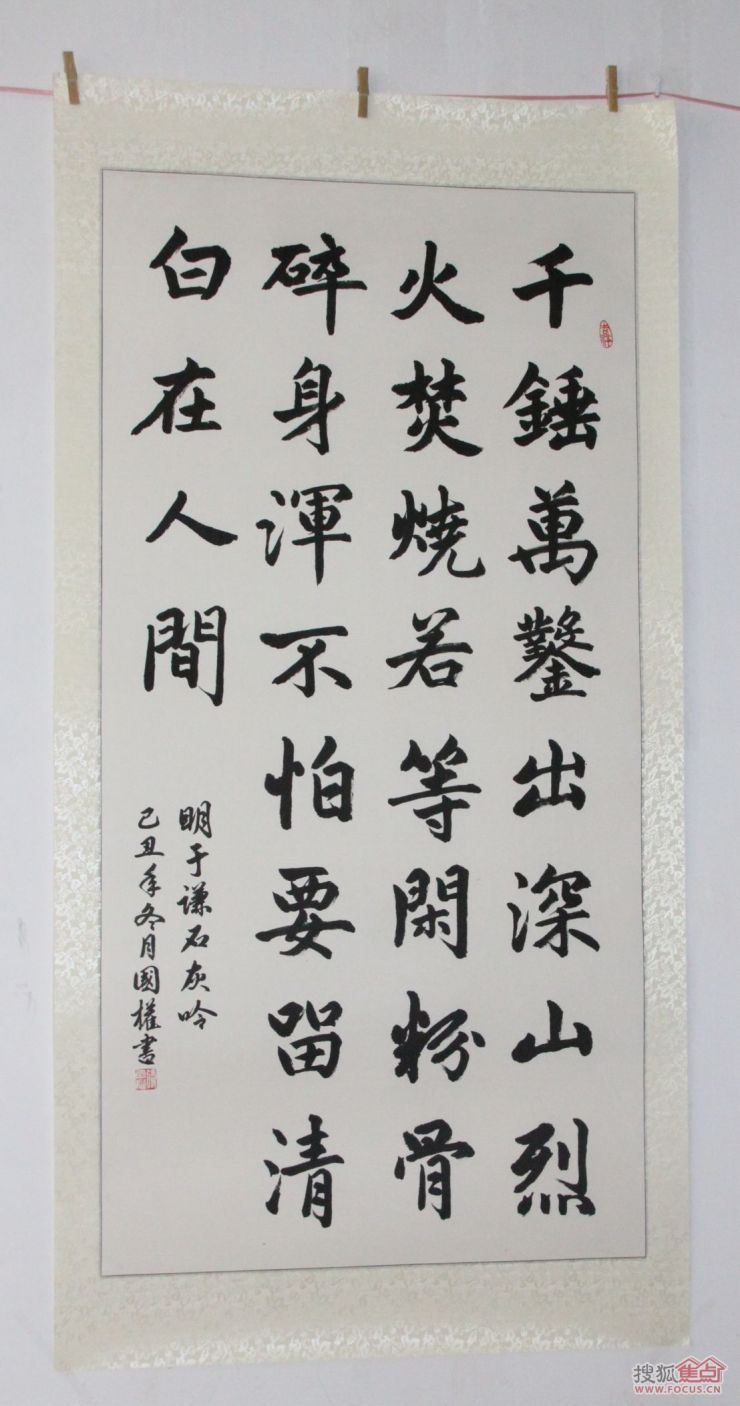 千錘萬鑿出深山烈
火焚燒若等閑粉骨
碎身渾不怕要留清
白在人間
明于謙石灰吟
己丑年冬月國權書
搜狐焦点
WWW.FOCUS.CN